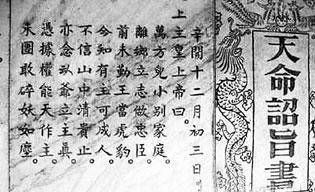 天命詔旨書
辛開十二月初三日
上主皇上帝曰。
萬方兒小別家庭。
離鄉立志做忠臣。
前未勤王當虎豹
今知有主可成人。
不信山中清貴止。
亦念爺立主眞
憑據權能天作主。
未團敢碎妖如塵。